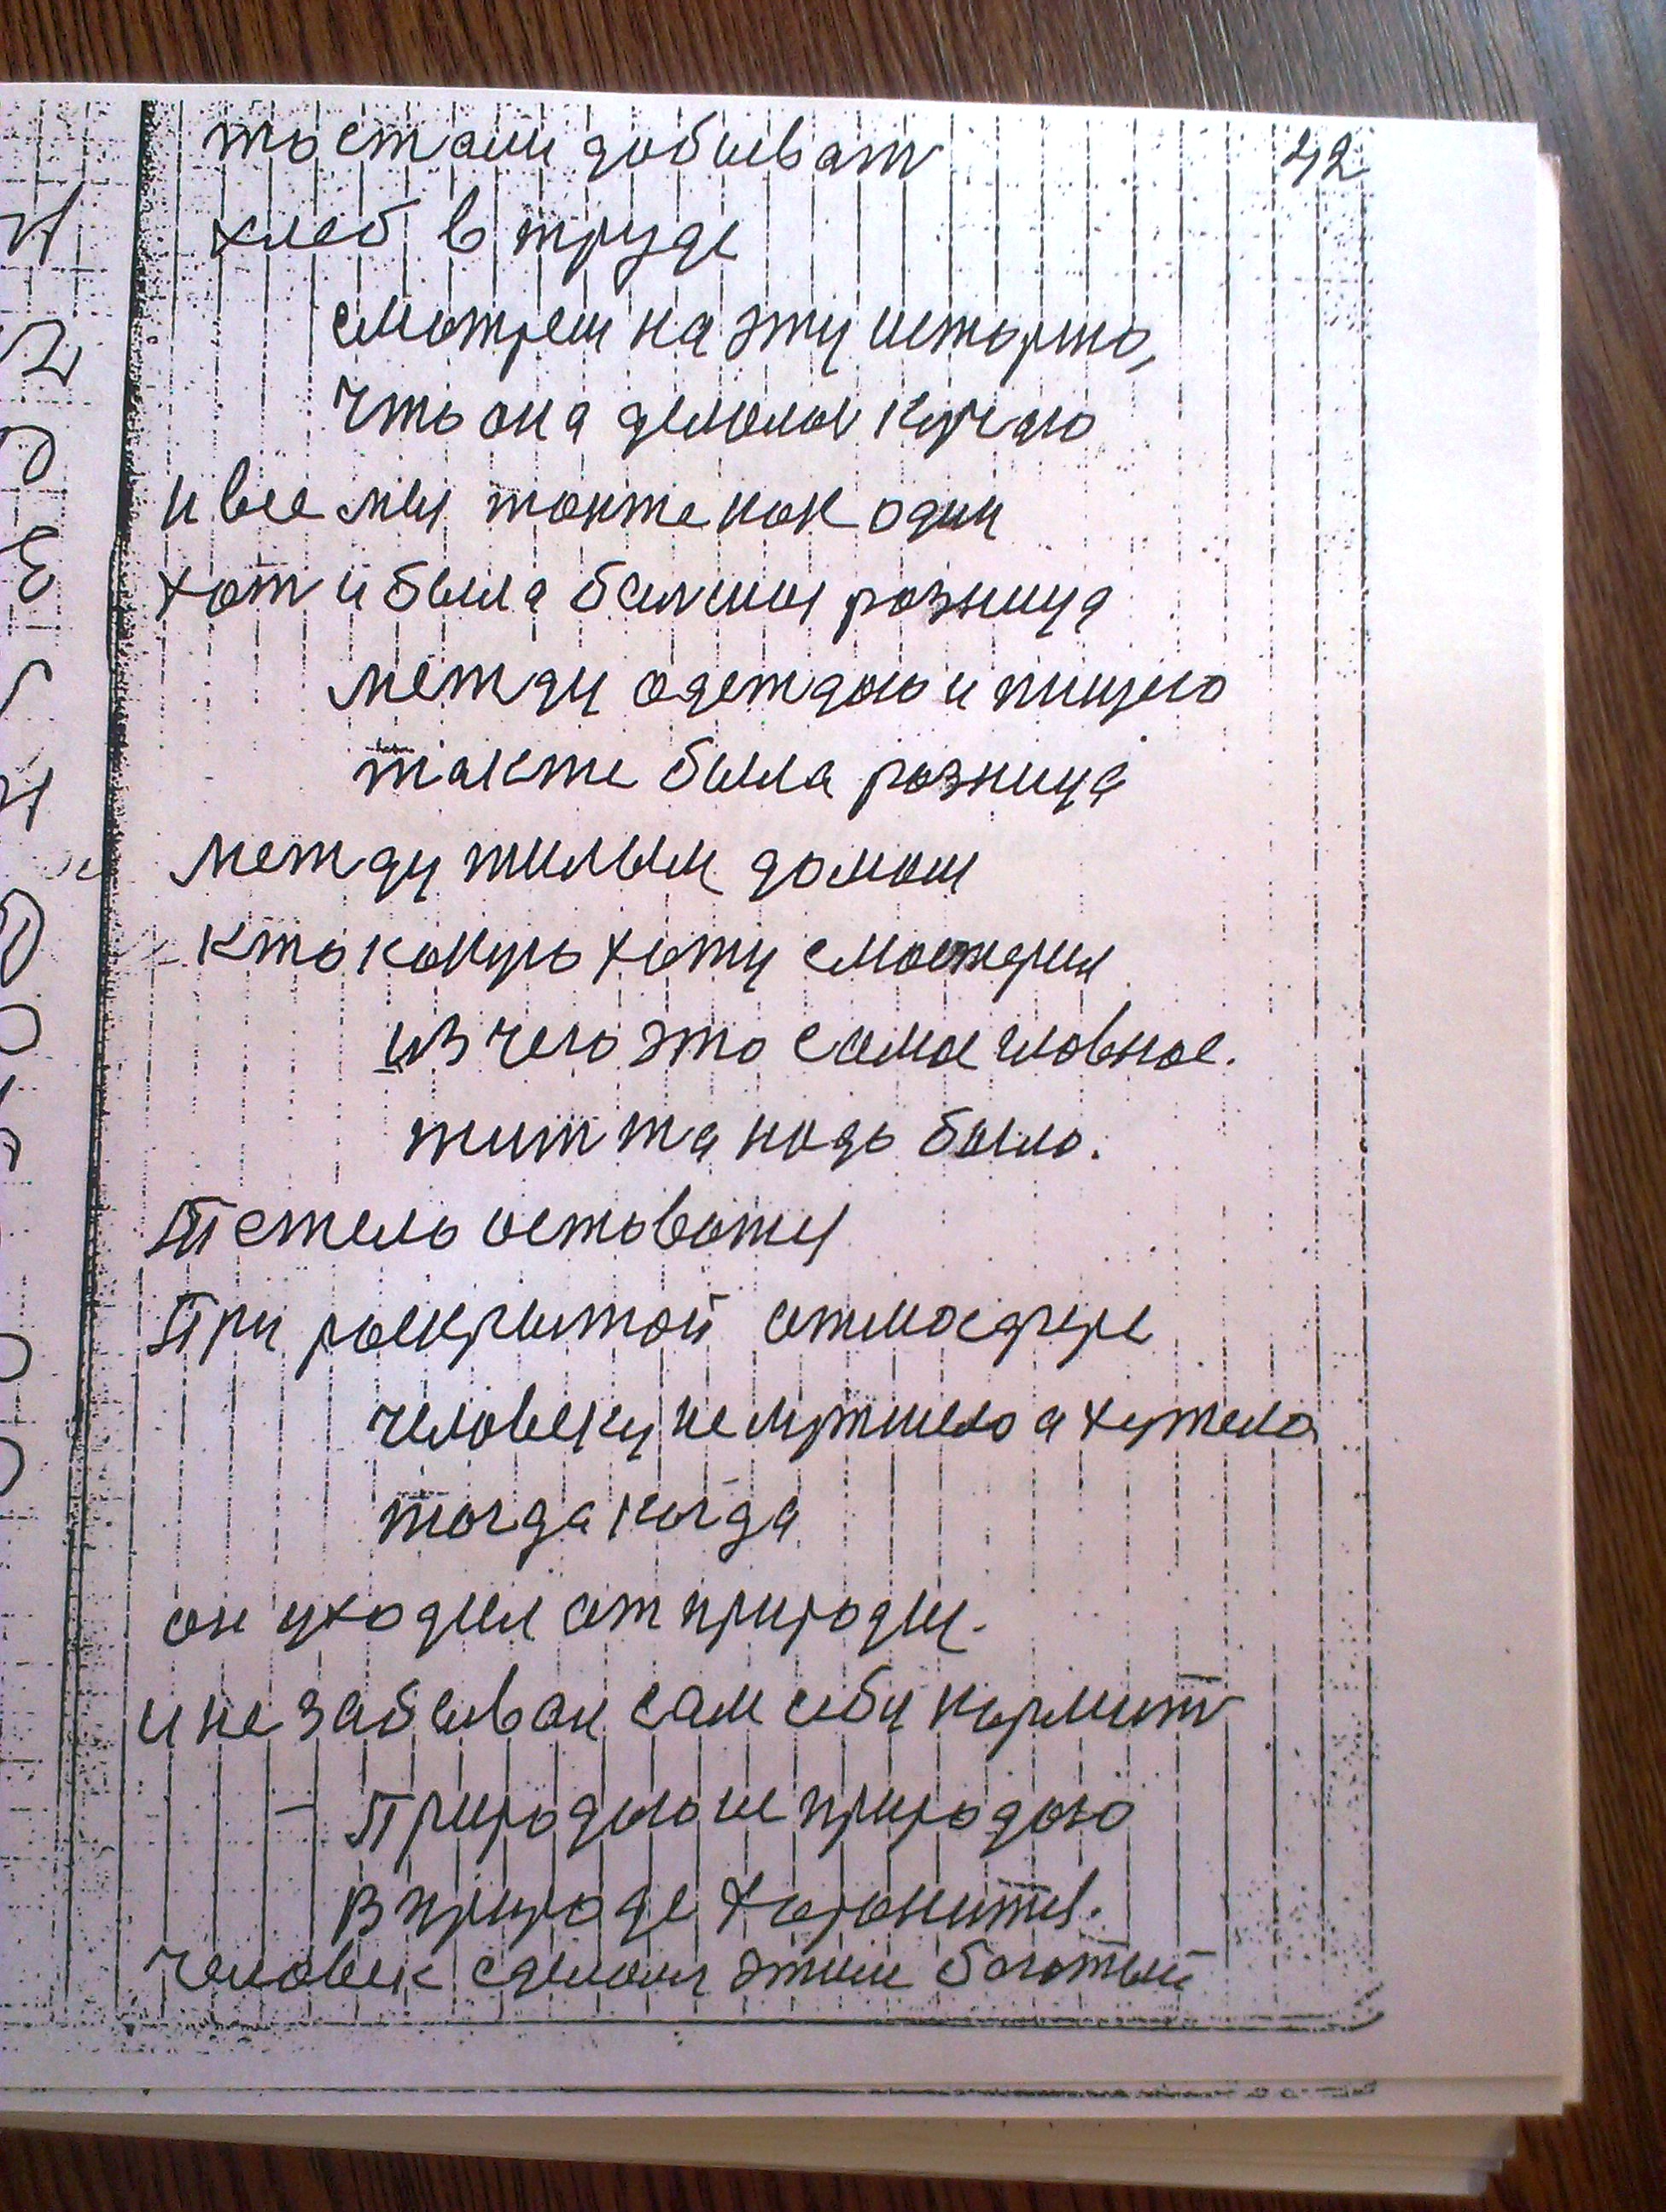 42
то стали добиват
хлеб в труде
смотрели на эту историю,
что она делала
и все мы токже как один
хот и была розница
между одеждою и пищею
также была розница
между жилым домом
кто какую хату смостерил
из чего это самое главное.
жит та надо было.
При роскрытой атмосфере
человеку не лутшело а хужело
тогда когда
он уходил от природы.
и не забывал сам себя кормит
– Природою и природою
В природе
человек сделался этим богатый